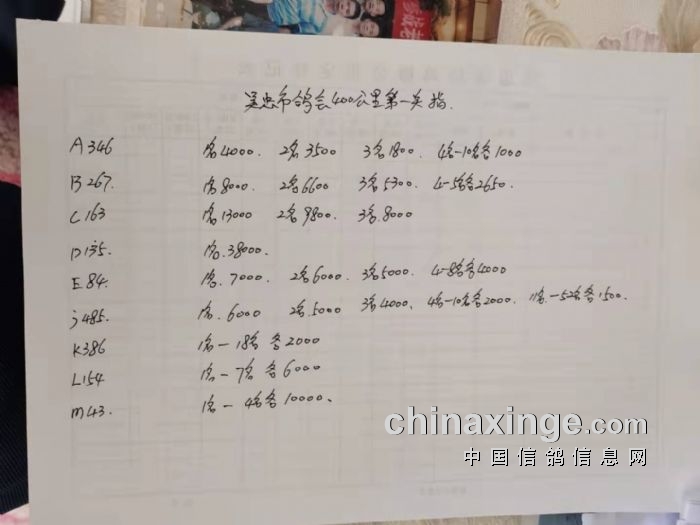 吴忠市鸽会400公里第一关指.
A346 1名4000. 2名3500 3名1800. 4名-10名各1000
B267. 1名8000. 2名6600 3名5300. 4-5名各2650.
C163 1名13000 2名9800. 3名.8000
D135. 1名.38000.
E84. 1名.7000. 2名6000. 3名5000. 4-8名各4000
j485. 1名.6000 2名.5000 3名4000. 4名-10名各2000. 11名-52名各1500.
K386 1名-18名各2000
L154 1名-7名各6000
m43. 1名-4名各10000.
chinaxinge.com
中国信鸽信息网